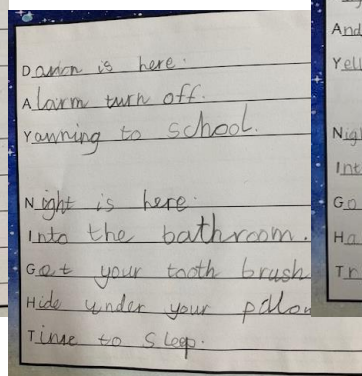 Dawn is here.
Alarm turn off.
Yawning to school.
Night is here.
Into the bathroom.
Get your tooth brush
Hide under your
Time to sleep.
And
Yell
Nig
Int
Go
Ha
Tr